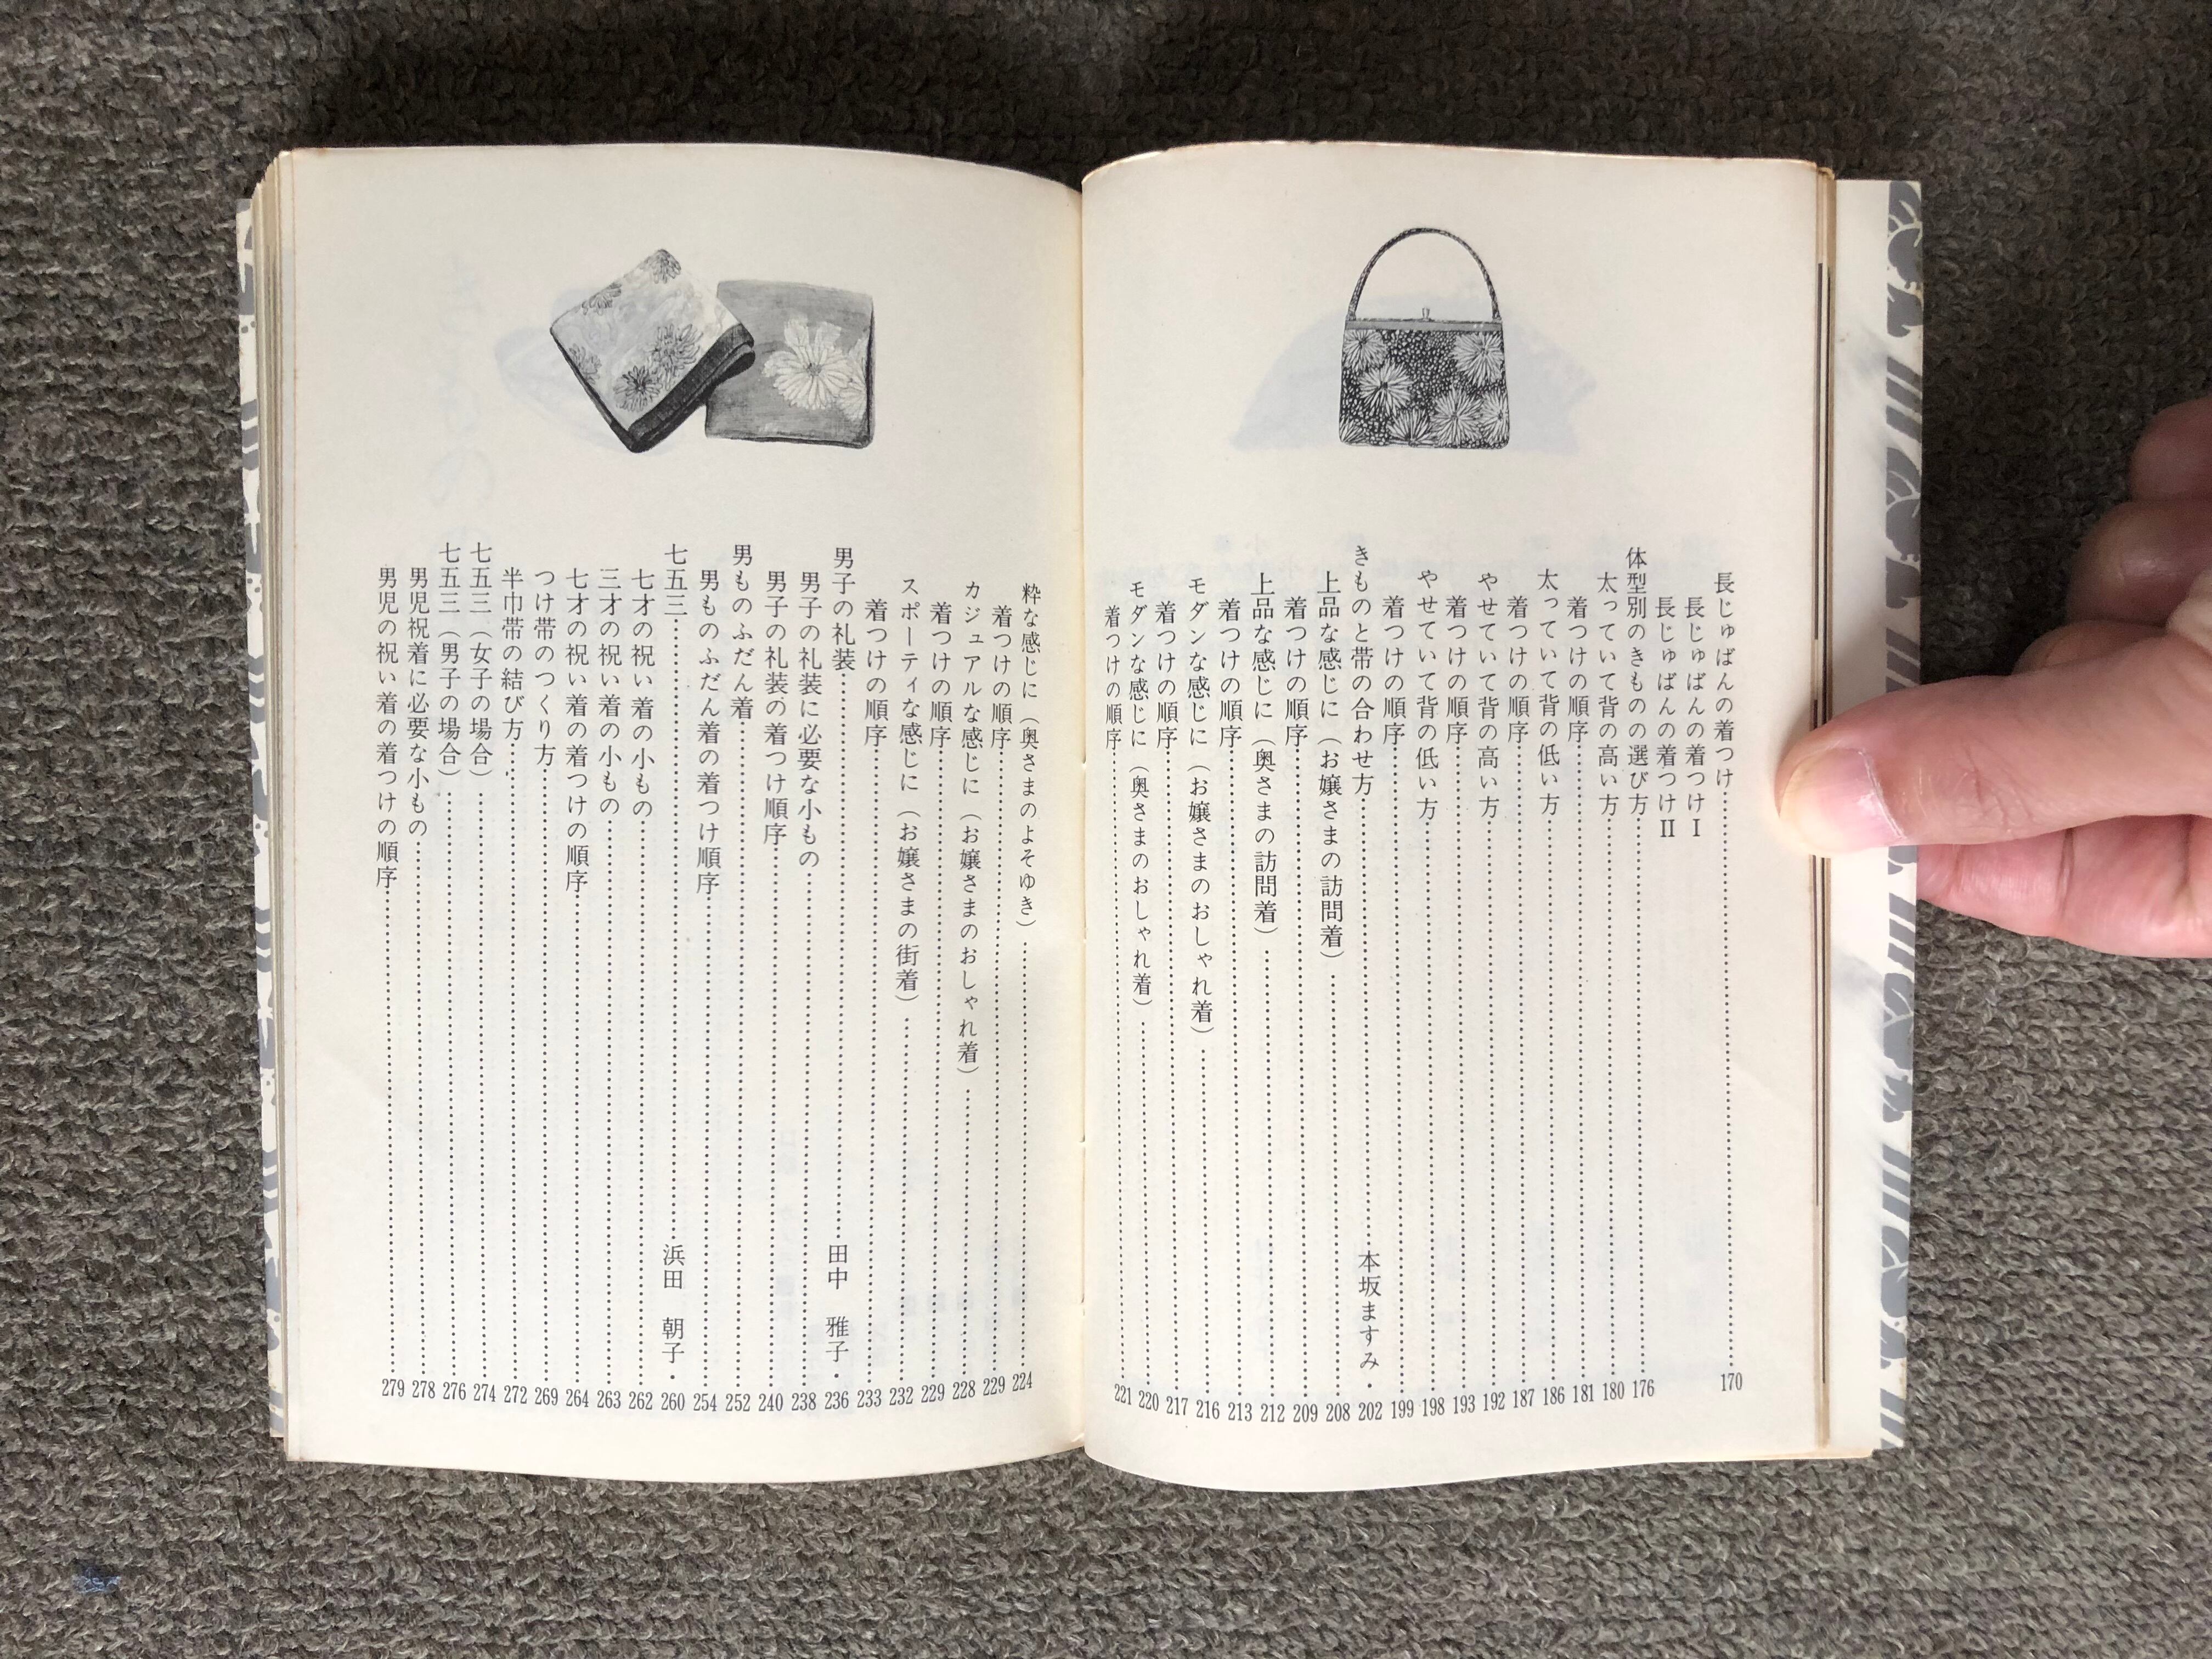 長じゅばんの着つけ……170
長じゅばんの着つけⅠ
長じゅばんの着つけⅡ
体型別のきものの選び方……176
太っていて背の高い方……180
着つけの順序……181
太っていて背の低い方……186
着つけの順序……187
やせていて背の高い方……192
着つけの順序……193
やせていて背の低い方……198
着つけの順序……199
きものと帯の合わせ方……本坂ますみ・202
上品な感じに（お嬢さまの訪問着）……208
着つけの順序……209
上品な感じに（奥さまの訪問着）……212
着つけの順序……213
モダンな感じに（お嬢さまのおしゃれ着）……216
着つけの順序……217
モダンな感じに（奥さまのおしゃれ着）……220
着つけの順序……221
粋な感じに（奥さまのよそゆき）……224
着つけの順序……229
カジュアルな感じに（お嬢さまのおしゃれ着）……228
着つけの順序……229
スポーティな感じに（お嬢さまの街着）……232
着つけの順序……233
男子の礼装……田中 雅子・236
男子の礼装に必要な小もの……238
男子の礼装の着つけ順序……240
男ものふだん着……252
男ものふだん着の着つけ順序……254
七五三……浜田 朝子・260
七才の祝い着の小もの……262
三才の祝い着の小もの……263
七才の祝い着の着つけの順序……264
つけ帯のつくり方……269
半巾帯の結び方……272
七五三（女子の場合）……274
七五三（男子の場合）……276
男児祝着に必要な小もの……278
男児の祝い着の着つけの順序……279